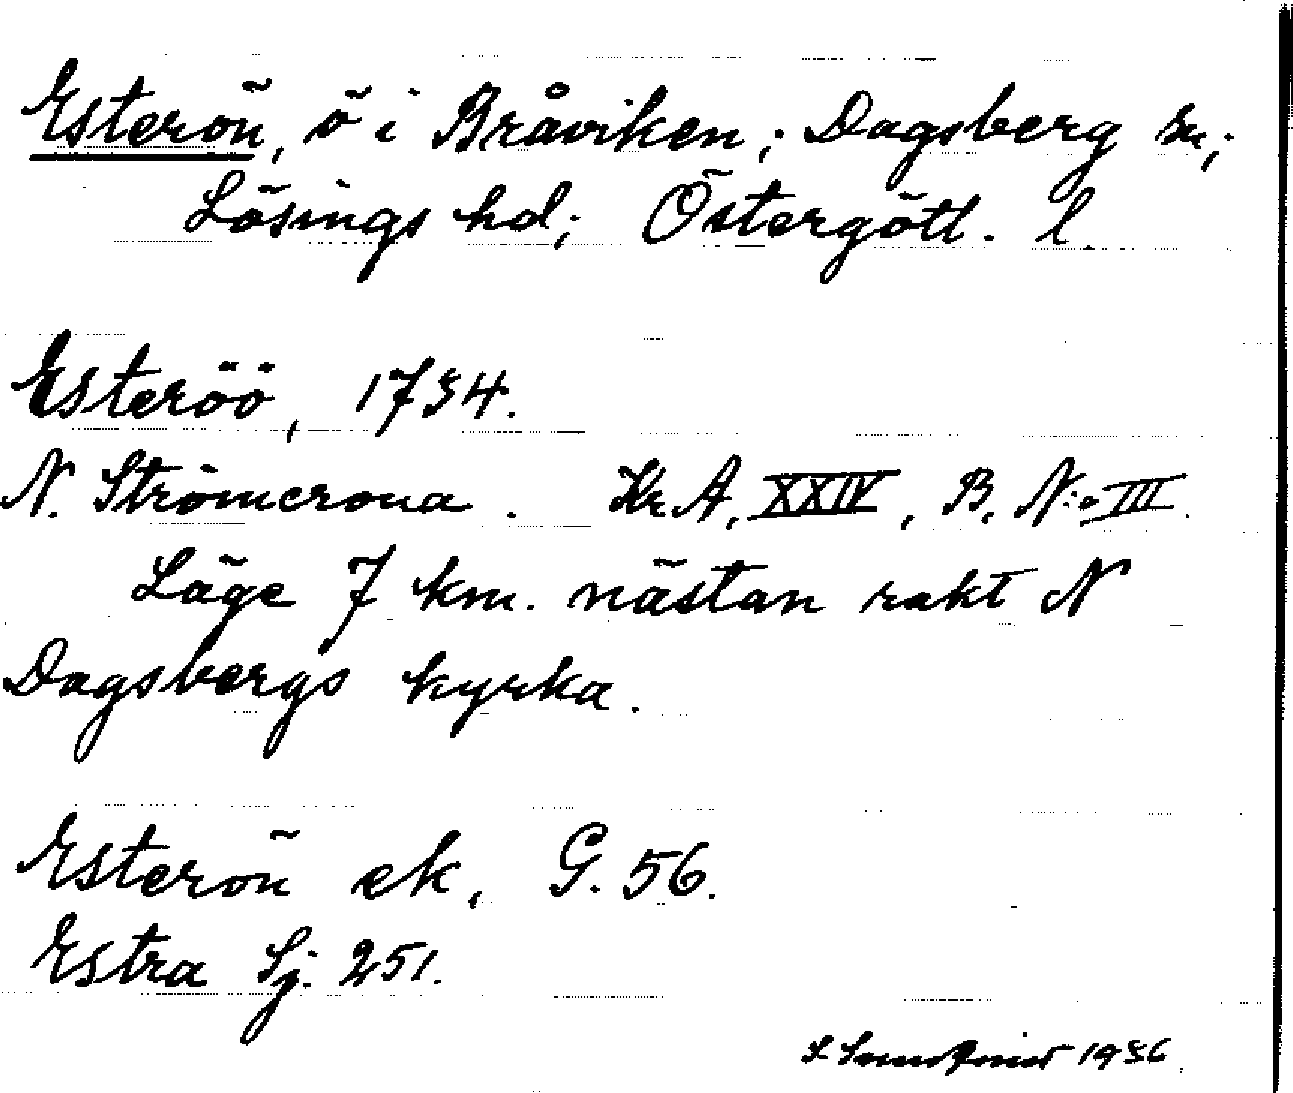 Esterön, ö i Bråviken; Dagsberg sn;
Lösings hd; Östergötl. l.
Esteröö, 1734.
N. Strömcrona. Kr. A, XXIV, B, N:o III.
Läge 7 km. nästan rakt N
Dagsbergs kyrka.
Esterön ek, G. 56.
Estra Sj. 251.
1936.